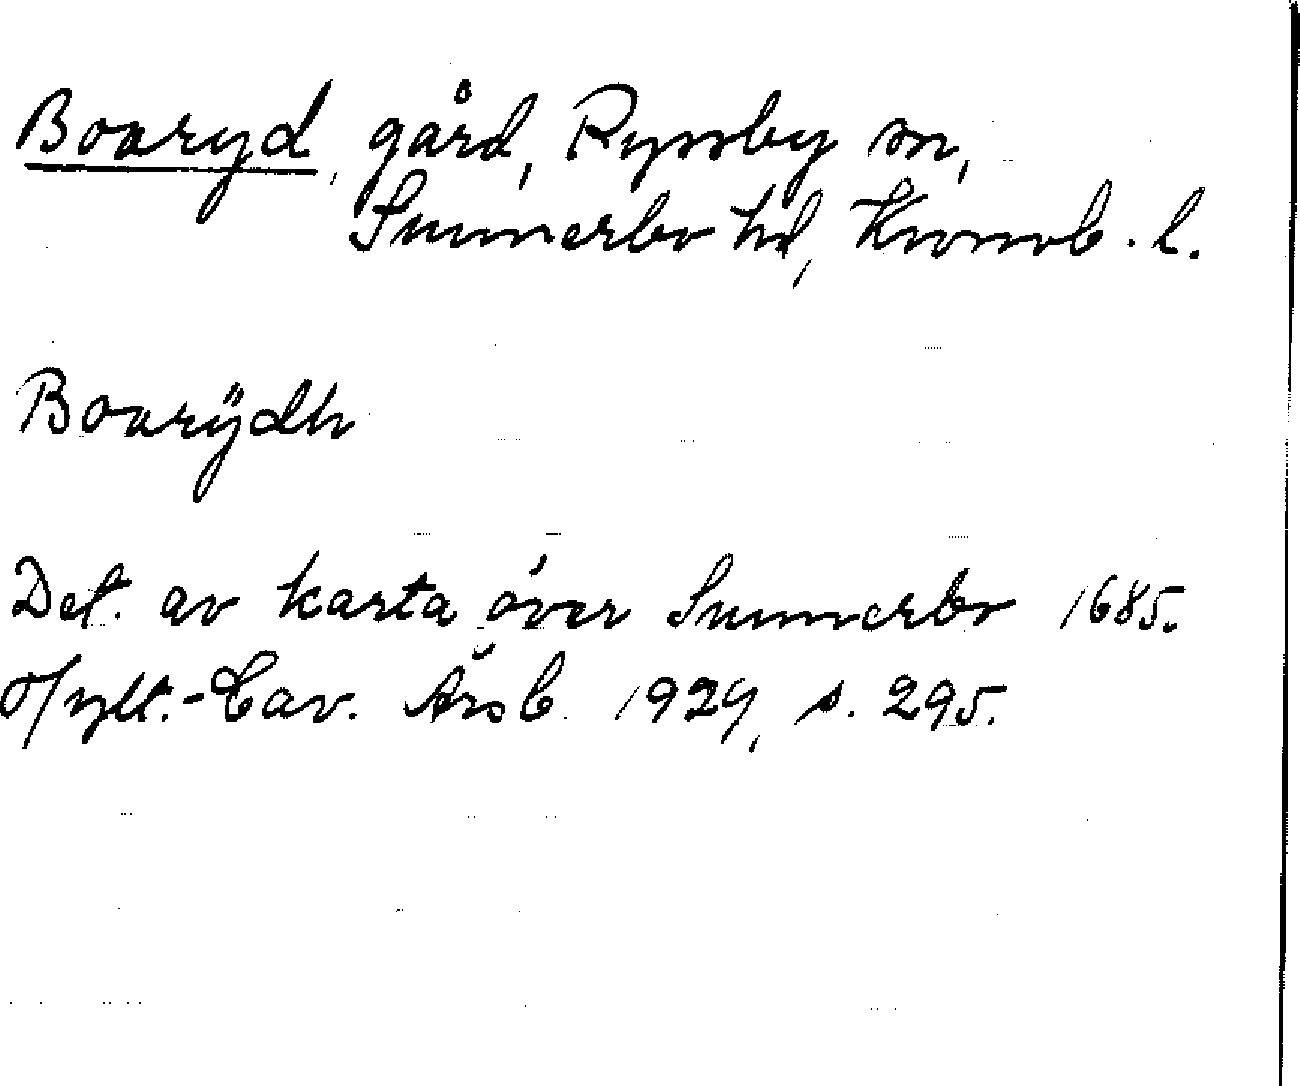 Boaryd, gård, Ryssby sn,
Sunnerbo hd, Kronob. l.
Boarÿdh
Det. av karta över Sunnerbo 1685.
Hylt.-Cav. Årsb. 1929, s. 295.